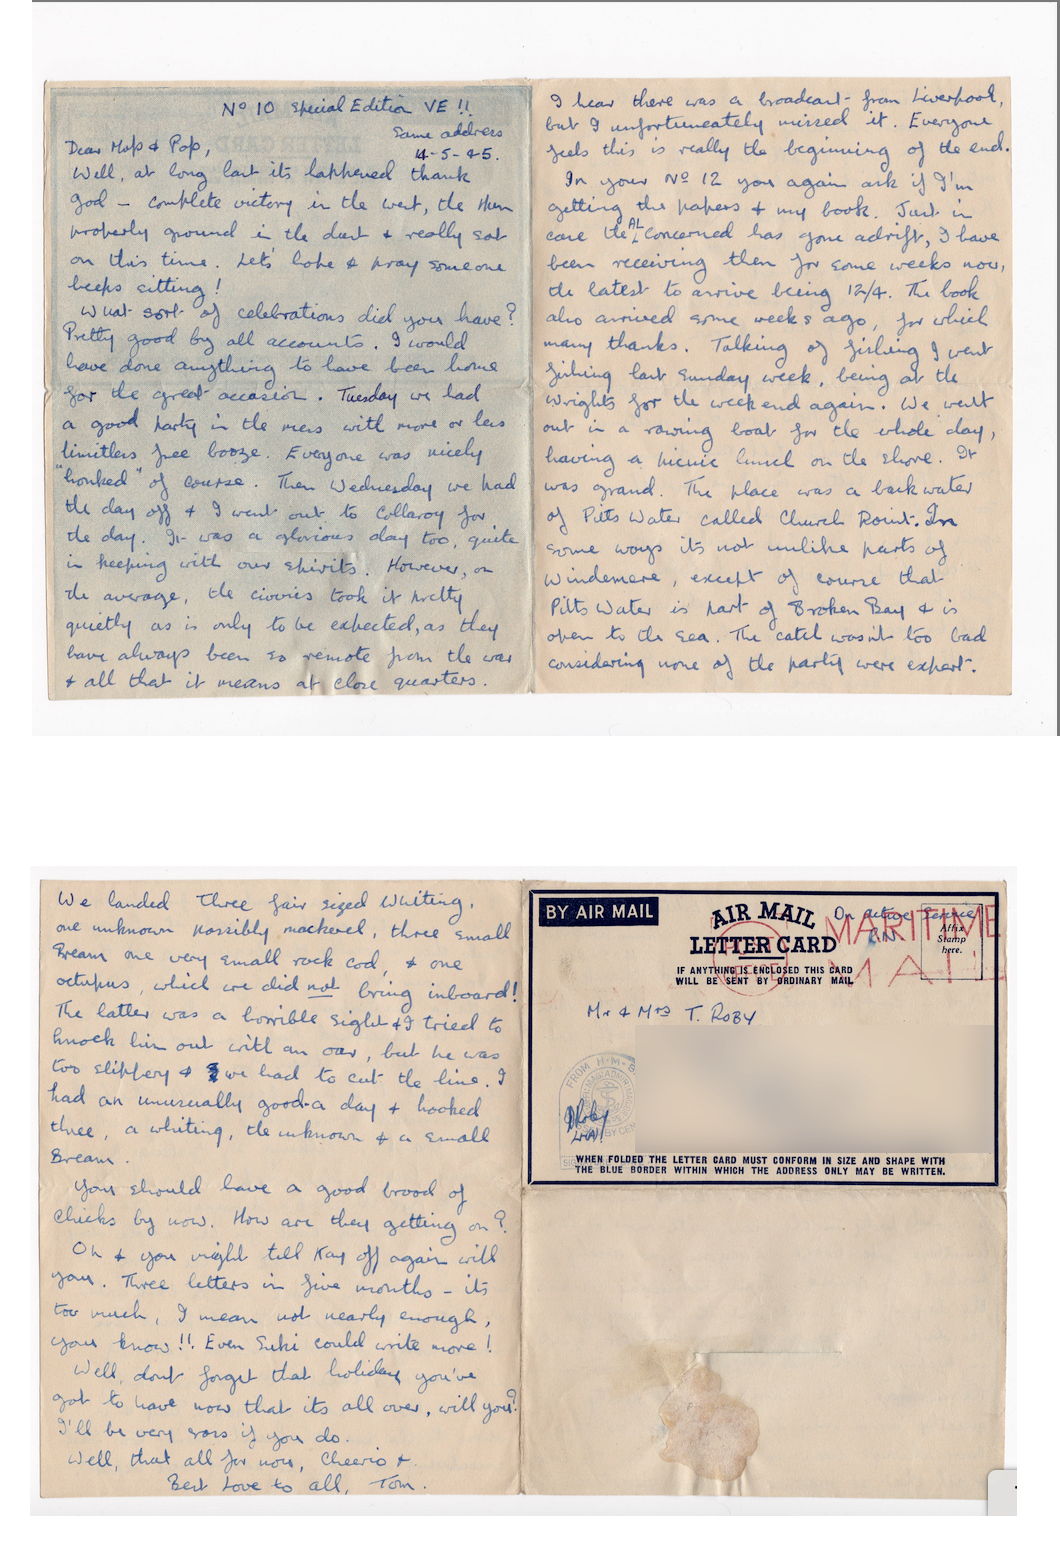 Nº 10 Special Edition VE !!
Same address
14-5-45.
Dear Mop & Pop,
Well, at long last its happened thank
god – complete victory in the west, the Hun
properly ground in the dust & really sat
on this time. Let's hope & pray someone
keeps sitting!
What sort of celebrations did you have?
Pretty good by all accounts. I would
have done anything to have been home
for the great occasion. Tuesday we had
a good party in the mess with more or less
limitless free booze. Everyone was nicely
"honked" of course. Then Wednesday we had
the day off & I went out to Collaroy for
the day. It was a glorious day too, quite
in keeping with our spirits. However, on
the average, the civvies took it pretty
quietly as is only to be expected, as they
have always been so remote from the war
& all that it means at close quarters.
I hear there was a broadcast from Liverpool,
but I unfortuneately missed it. Everyone
feels this is really the beginning of the end.
In your Nº 12 you again ask if I'm
getting the papers & my book. Just in
case the AL concerned has gone adrift, I have
been receiving them for some weeks now,
the latest to arrive being 12/4. The book
also arrived some weeks ago, for which
many thanks. Talking of fishing I went
fishing last Sunday week, being at the
Wrights for the weekend again. We went
out in a rowing boat for the whole day,
having a picnic lunch on the shore. It
was grand. The place was a backwater
of Pitts Water called Church Point. In
some ways its not unlike parts of
Windemere, except of course that
Pitts Water is part of Broken Bay & is
open to the sea. The catch wasn't too bad
considering none of the party were expert.
We landed three fair sized Whiting,
one unknown possibly mackerel, three small
Bream one very small rock cod, & one
octupus, which we did not bring inboard!
The latter was a horrible sight & I tried to
knock him out with an oar, but he was
too slippery & we had to cut the line. I
had an unusually good a day & hooked
three, a whiting, the unknown & a small
Bream.
You should have a good brood of
chicks by now. How are they getting on?
Oh & you might tell Kay off again will
you. Three letters in five months – its
too much, I mean not nearly enough,
you know!! Even Suki could write more!
Well, dont forget that holiday you've
got to have now that its all over, will you?
I'll be very sors if you do.
Well, that all for now, Cheerio &
Best Love to all, Tom.
BY AIR MAIL
AIR MAIL
LETTER CARD
On active service
RN
MARITIME
MAIL
Affix
Stamp
here.
IF ANYTHING IS ENCLOSED THIS CARD
WILL BE SENT BY ORDINARY MAIL
Mr & Mrs T. ROBY
FROM H.M.S
WHEN FOLDED THE LETTER CARD MUST CONFORM IN SIZE AND SHAPE WITH
THE BLUE BORDER WITHIN WHICH THE ADDRESS ONLY MAY BE WRITTEN.